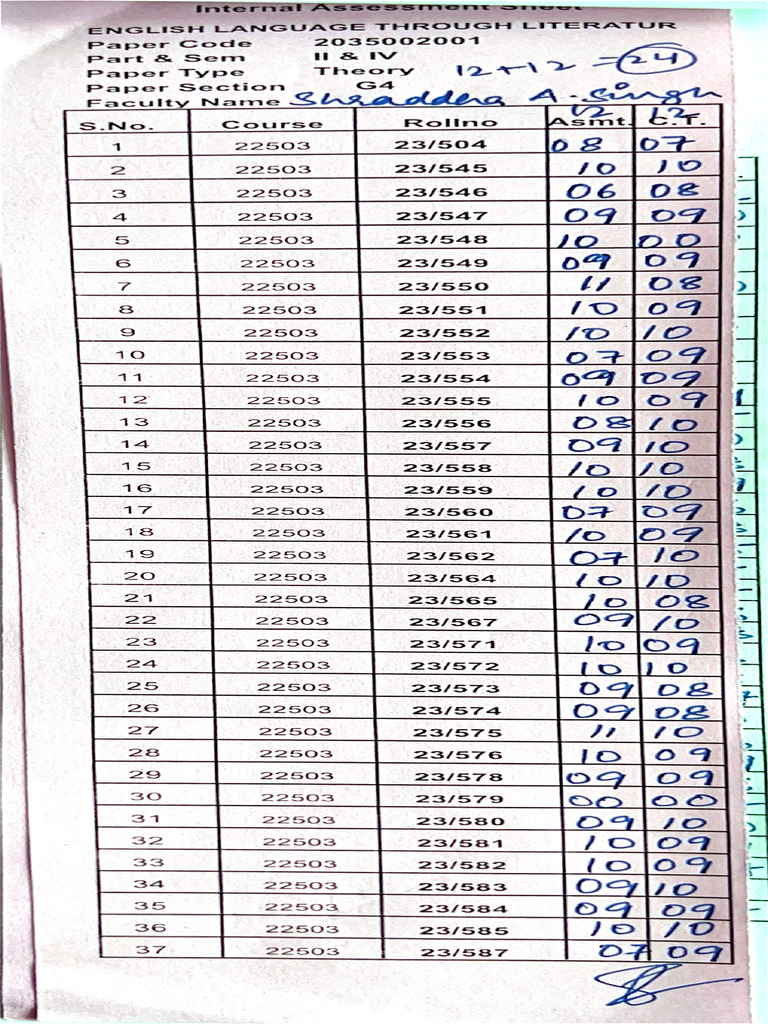 Internal Assessment Sheet
ENGLISH LANGUAGE THROUGH LITERATUR
Paper Code 2035002001
Part & Sem II & IV
Paper Type Theory 12+12 = 24
Paper Section G4
Faculty Name Shraddha A. Singh
12 12
S.No. Course Rollno Asmt. C.T.
1 22503 23/504 08 07
2 22503 23/545 10 10
3 22503 23/546 06 08
4 22503 23/547 09 09
5 22503 23/548 10 00
6 22503 23/549 09 09
7 22503 23/550 11 08
8 22503 23/551 10 09
9 22503 23/552 10 10
10 22503 23/553 07 09
11 22503 23/554 09 09
12 22503 23/555 10 09
13 22503 23/556 08 10
14 22503 23/557 09 10
15 22503 23/558 10 10
16 22503 23/559 10 10
17 22503 23/560 07 09
18 22503 23/561 10 09
19 22503 23/562 07 10
20 22503 23/564 10 10
21 22503 23/565 10 08
22 22503 23/567 09 10
23 22503 23/571 10 09
24 22503 23/572 10 10
25 22503 23/573 09 08
26 22503 23/574 09 08
27 22503 23/575 11 10
28 22503 23/576 10 09
29 22503 23/578 09 09
30 22503 23/579 00 00
31 22503 23/580 09 10
32 22503 23/581 10 09
33 22503 23/582 10 09
34 22503 23/583 09 10
35 22503 23/584 09 09
36 22503 23/585 10 10
37 22503 23/587 07 09